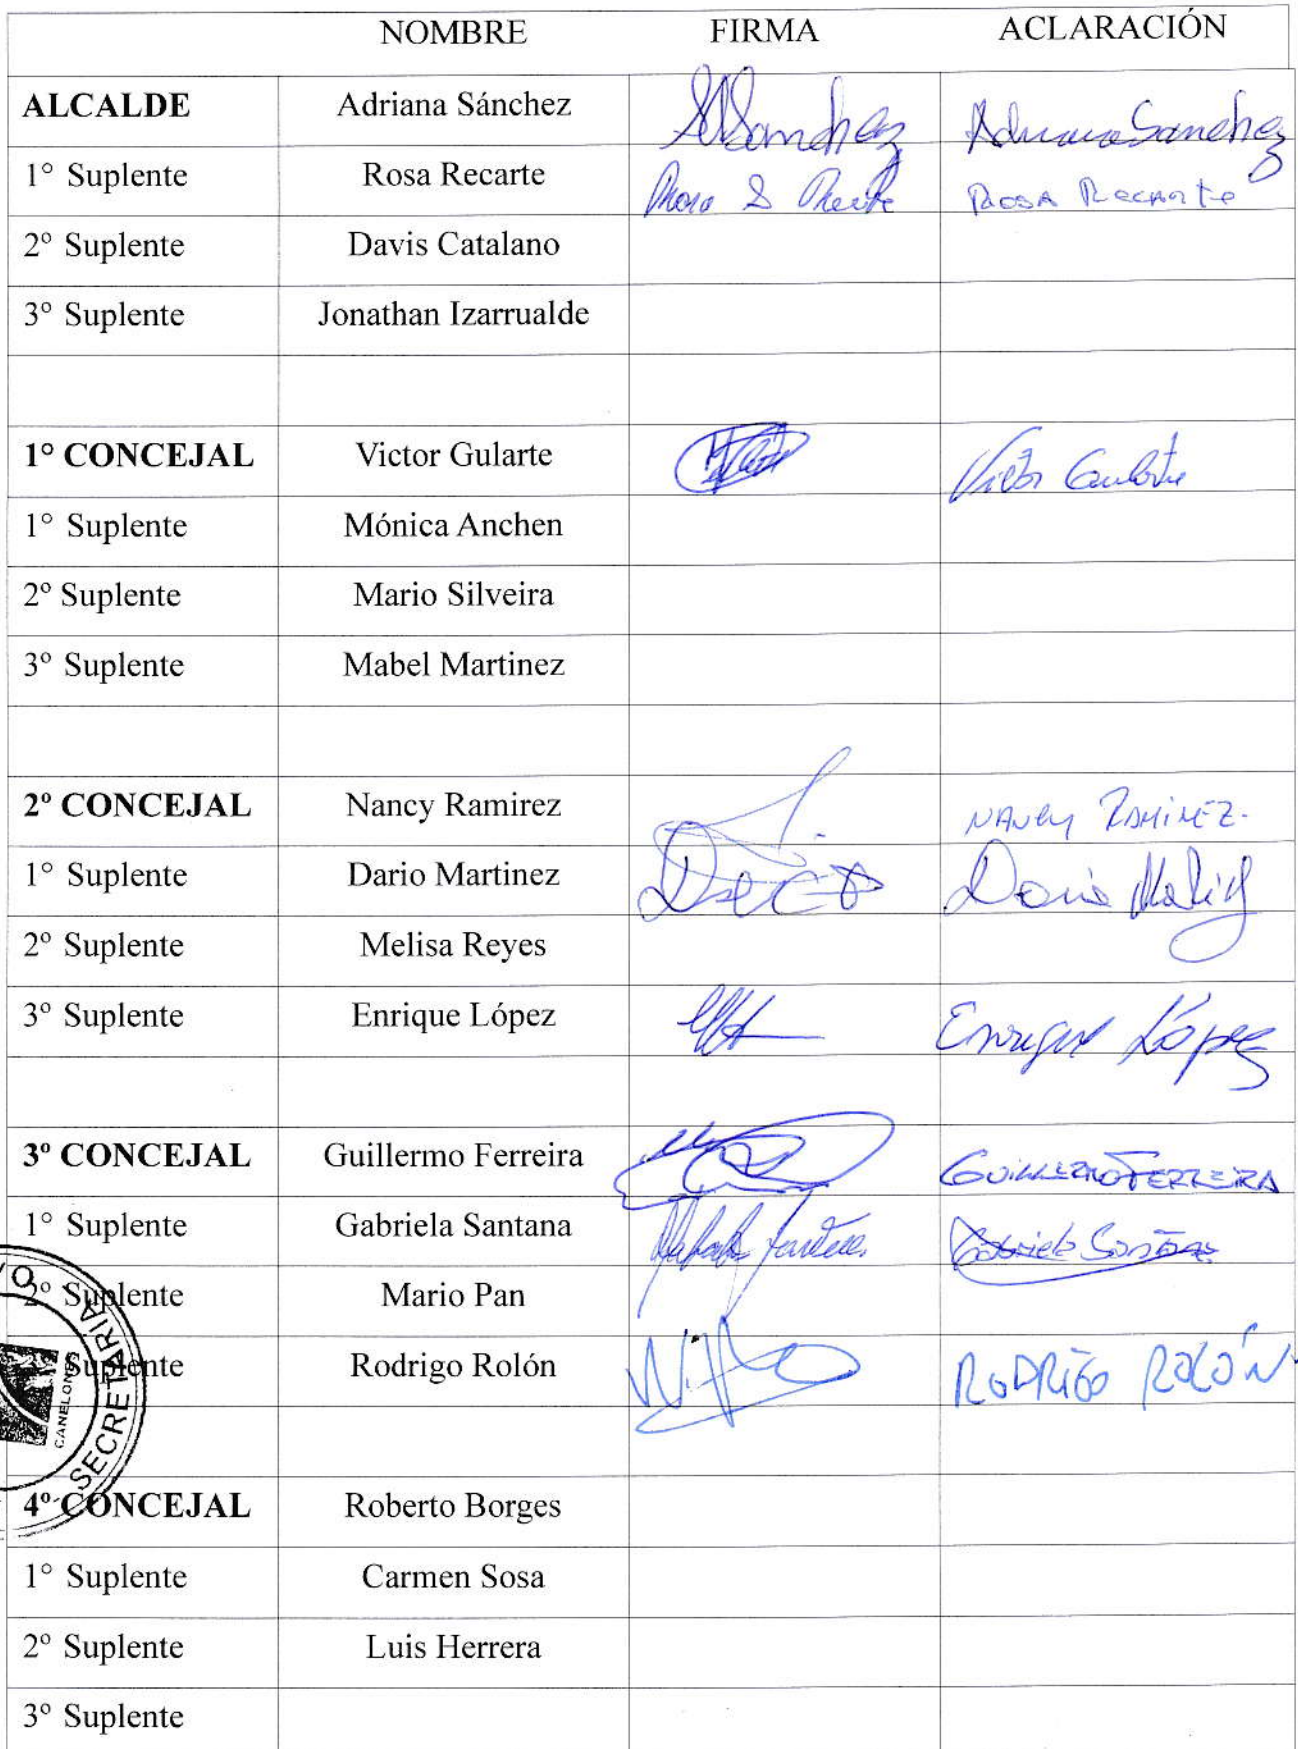 NOMBRE FIRMA ACLARACIÓN
ALCALDE Adriana Sánchez ASanchez Adriana Sanchez
1° Suplente Rosa Recarte Rosa Recarte
2º Suplente Davis Catalano
3º Suplente Jonathan Izarrualde
1° CONCEJAL Victor Gularte Victor Gularte
1° Suplente Mónica Anchen
2º Suplente Mario Silveira
3º Suplente Mabel Martinez
2º CONCEJAL Nancy Ramirez NANCY RAMIREZ.
1° Suplente Dario Martinez Dario
2º Suplente Melisa Reyes
3º Suplente Enrique López Enrique López
3º CONCEJAL Guillermo Ferreira GUILLERMO FERREIRA
1° Suplente Gabriela Santana Gabriela Santana
2º Suplente Mario Pan
Suplente Rodrigo Rolón RODRIGO ROLÓN
SECRETARIA
CANELONES
4º CONCEJAL Roberto Borges
1° Suplente Carmen Sosa
2º Suplente Luis Herrera
3º Suplente